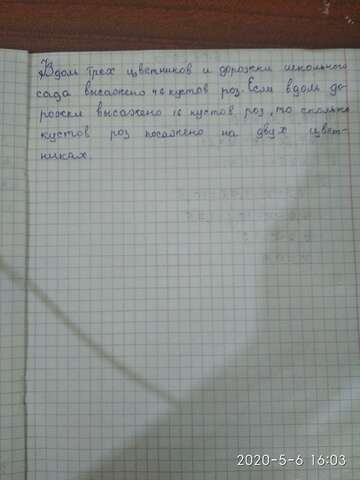 Вдоль трех цветников и дорожки школьного
сада высажено 46 кустов роз. Если вдоль до-
рожки высажено 16 кустов роз, то сколько
кустов роз посажено на двух цвет-
никах.
2020-5-6 16:03